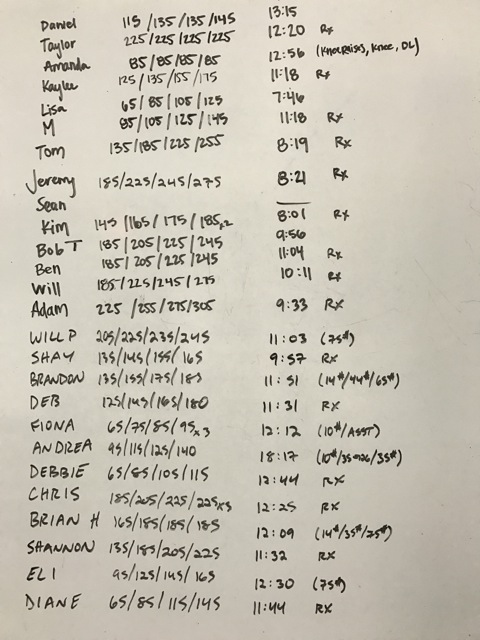 Daniel 115/135/135/145 13:15
Taylor 225/225/225/225 12:20 Rx
Amanda 85/85/85/85 12:56 (Knee Raises, Knee, DL)
Kaylee 125/135/155/175 11:18 Rx
Lisa 65/85/105/125 7:46
M 85/105/125/145 11:18 Rx
Tom 135/185/225/255 8:19 Rx
Jeremy 185/225/245/275 8:21 Rx
Sean —
Kim 145/165/175/185x2 8:01 Rx
Bob T 185/205/225/245 9:56
Ben 185/205/225/245 11:04 Rx
Will 185/225/245/275 10:11 Rx
Adam 225/255/275/305 9:33 Rx
WILL P 205/225/235/245 11:03 (75#)
SHAY 135/145/155/165 9:57 RX
BRANDON 135/155/175/185 11:51 (14#/44#/65#)
DEB 125/145/165/180 11:31 RX
FIONA 65/75/85/95x3 12:12 (10#/ASST)
ANDREA 95/115/125/140 18:17 (10#/35#@26/35#)
DEBBIE 65/85/105/115 12:44 RX
CHRIS 185/205/225/225x3 12:25 RX
BRIAN H 165/185/185/185 12:09 (14#/35#/75#)
SHANNON 135/185/205/225 11:32 RX
ELI 95/125/145/165 12:30 (75#)
DIANE 65/85/115/145 11:44 RX